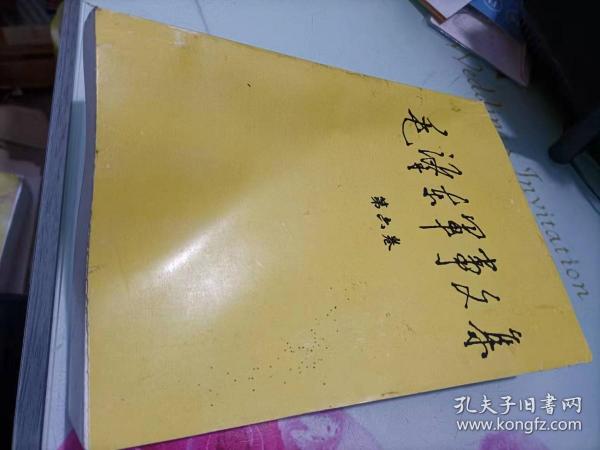 毛泽东军事文集
第六卷
Wedding
Invitation
孔夫子旧书网
www.kongfz.com